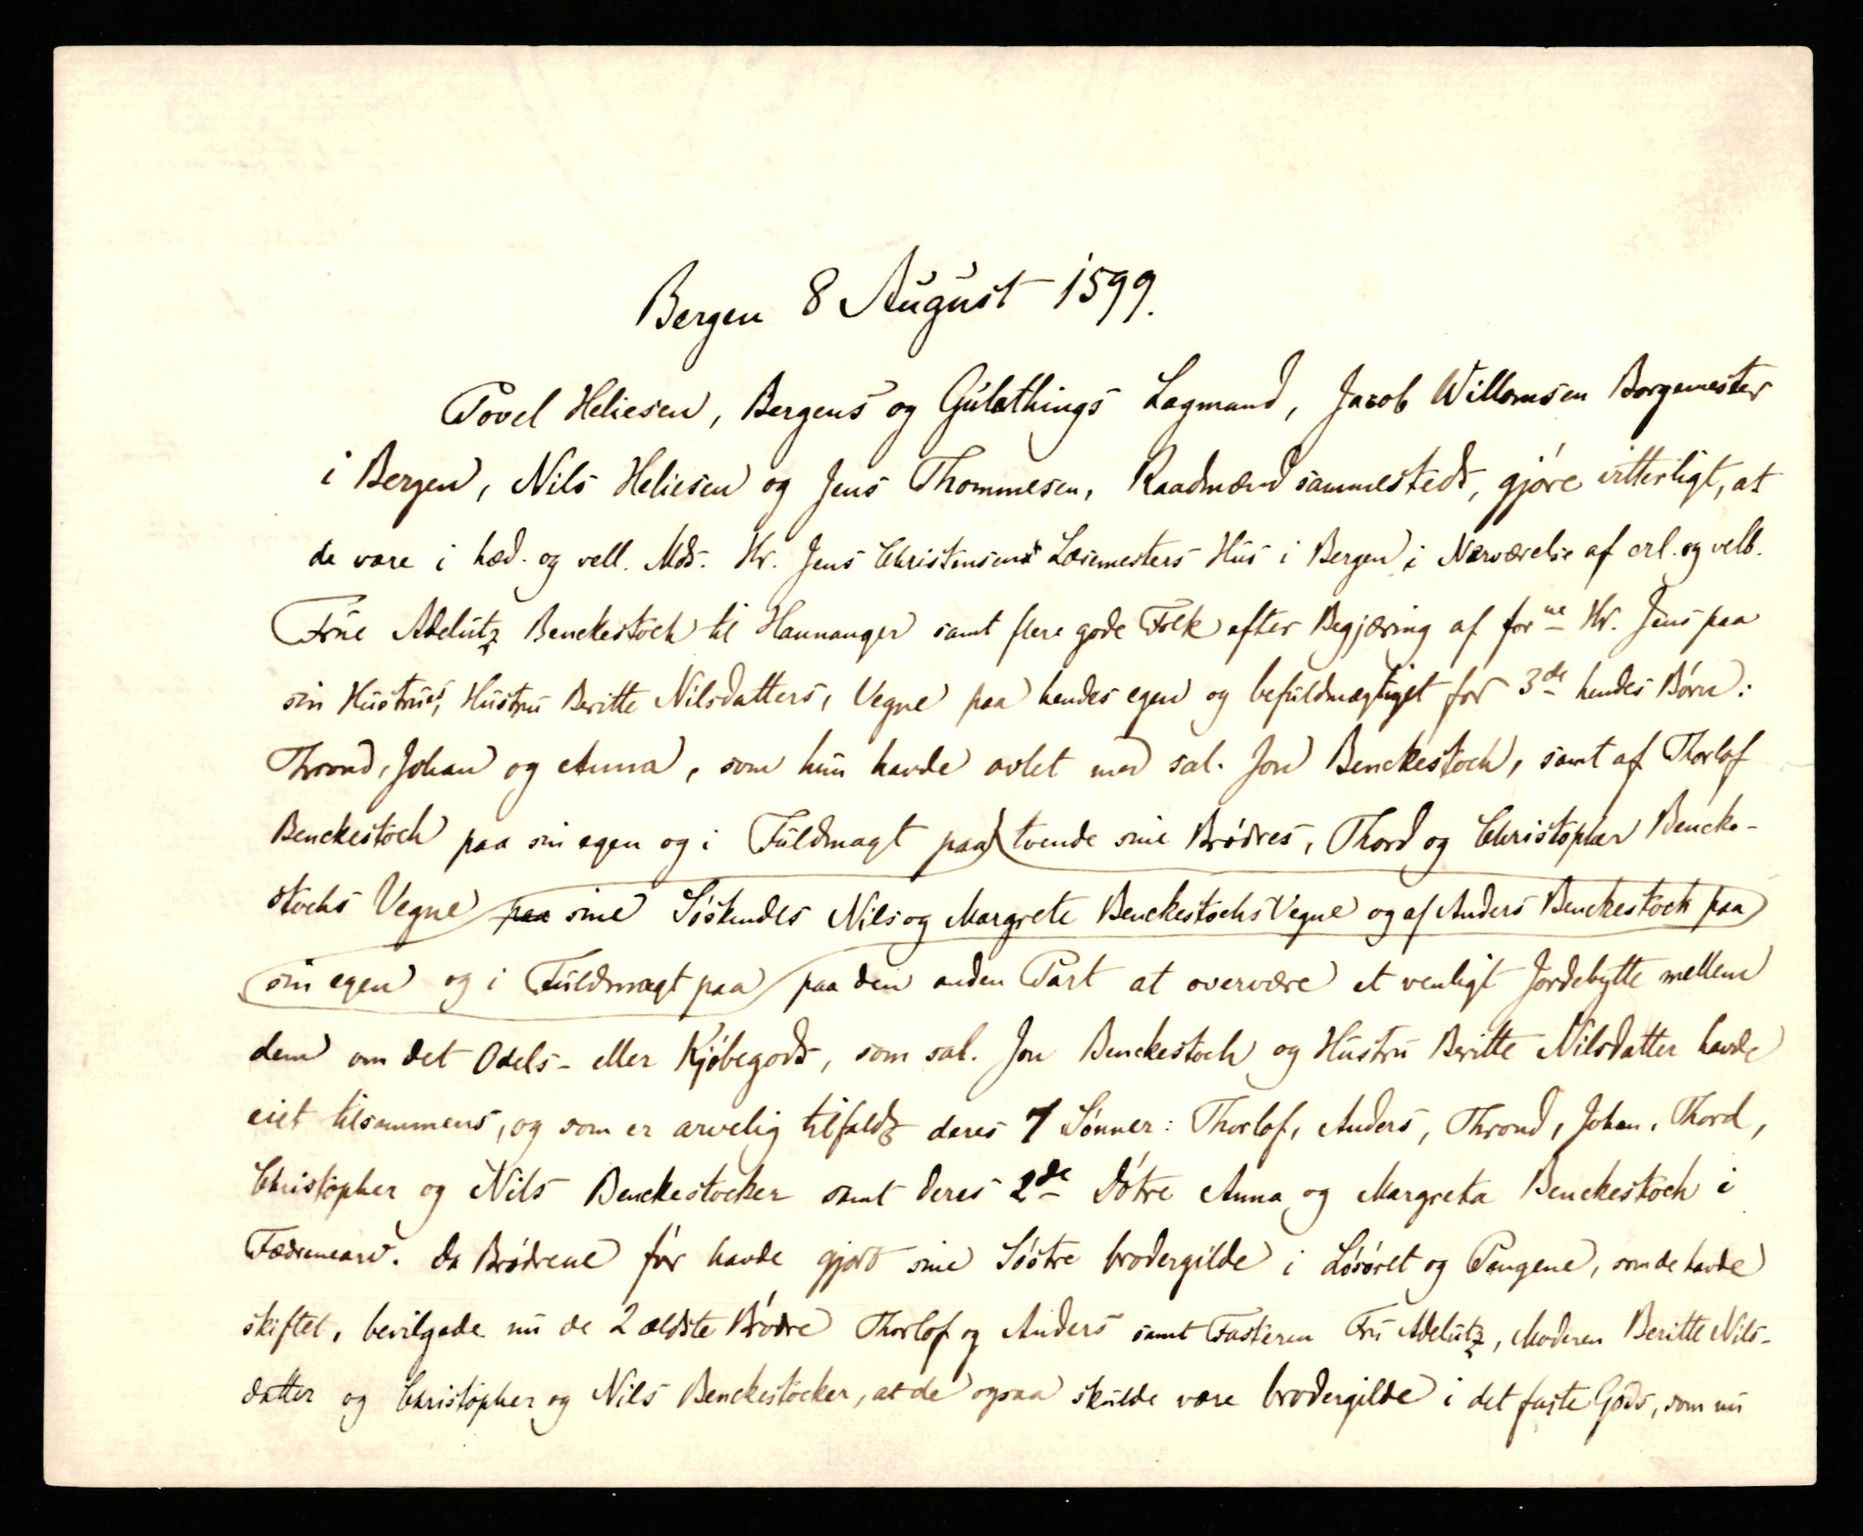 Bergen 8 August 1599.
Povel Heliesen, Bergens og Gulathings Lagmand, Jacob Willomsen Borgemester
i Bergen, Nils Heliesen og Jens Thommesen, Raadmænd sammesteds, gjøre vitterligt, at
de vare i hæd. og vell. Mds. Hr. Jens Christensens Læsemesters Hus i Bergen i Nærværelse af erl. og velb.
Frue Adelutz Benckestoch til Hannanger samt flere gode Folk efter Begjæring af forne Hr. Jens paa
sin Hustrues, Hustru Beritte Nilsdatters, Vegne paa hendes egen og befuldmægtiget for 3de hendes Børn:
Thrond, Johan og Anna, som hun havde avlet med sal. Jon Benckestoch, samt af Thorlof
Benckestoch paa sin egen og i Fuldmagt paa tvende sine Brødres, Thord og Christopher Bencke-
stochs Vegne paa sine Søskendes Nils og Margrete Benckestochs Vegne og af Anders Benckestock paa
sin egen og i Fuldmagt paa paa den anden Part at overvære et venligt Jordebytte mellem
dem om det Odels- eller Kjøbegods, som sal. Jon Benckestoch og Hustru Beritte Nilsdatter havde
eiet tilsammens, og som er arvelig tilfaldt deres 7 Sønner: Thorlof, Anders, Thrond, Johan, Thord,
Christopher og Nils Benckestocker samt deres 2de Døtre Anna og Margreta Benckestoch i
Fædrenearv. Da Brødrene før havde gjort sine Søstre brodergilde i Løsøret og Pengene, som de havde
skiftet, bevilgede nu de 2 ældste Brødre Thorlof og Anders samt Fasteren Fru Adelutz, Moderen Beritte Nils-
datter og Christopher og Nils Benckestocker, at de ogsaa skulde være brodergilde i det faste Gods, som nu